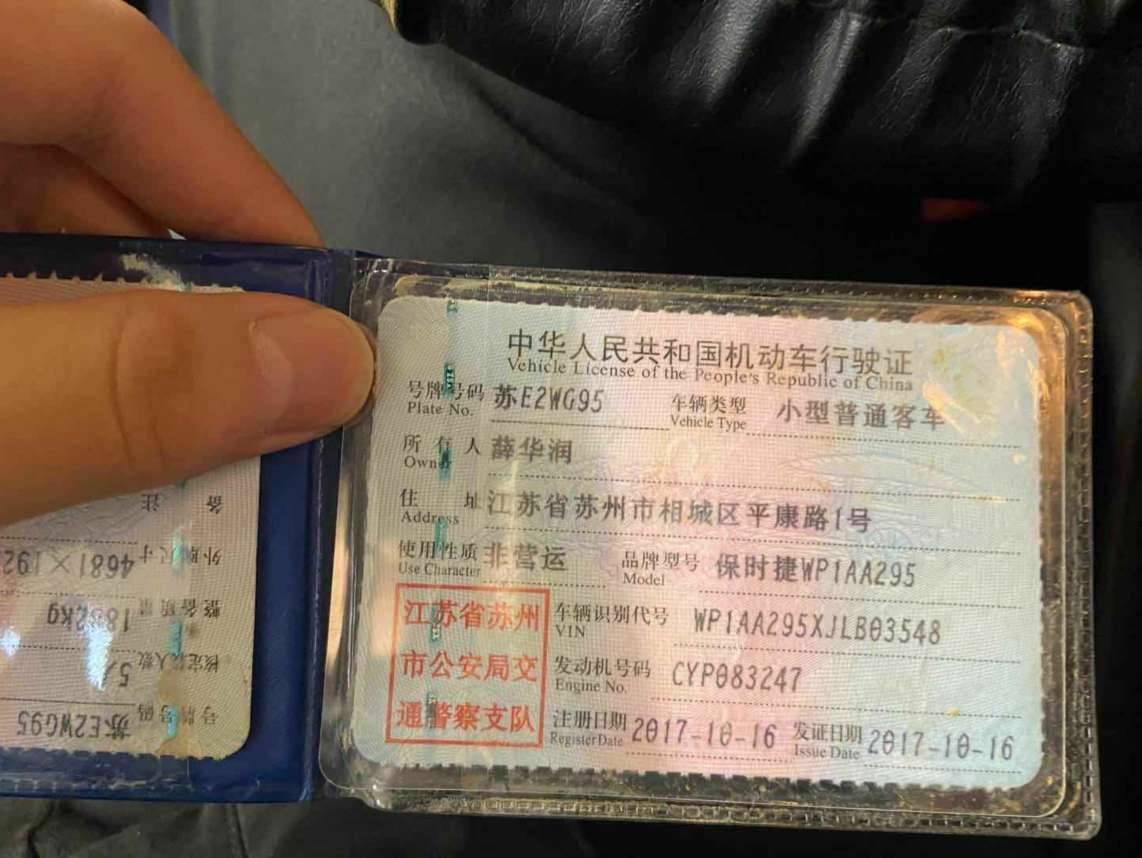 中华人民共和国机动车行驶证
Vehicle License of the People's Republic of China
号牌号码 苏E2WG95 车辆类型 小型普通客车
Plate No. Vehicle Type
所有人 薛华润
Owner
住址 江苏省苏州市相城区平康路1号
Address
使用性质 非营运 品牌型号 保时捷WP1AA295
Use Character Model
江苏省苏州
市公安局交
通警察支队
车辆识别代号 WP1AA295XJLB03548
VIN
发动机号码 CYP083247
Engine No.
注册日期 2017-10-16 发证日期 2017-10-16
Register Date Issue Date
号牌号码 苏E2WG95
核定载人数 5人
整备质量
外廓尺寸 4681×192
备注